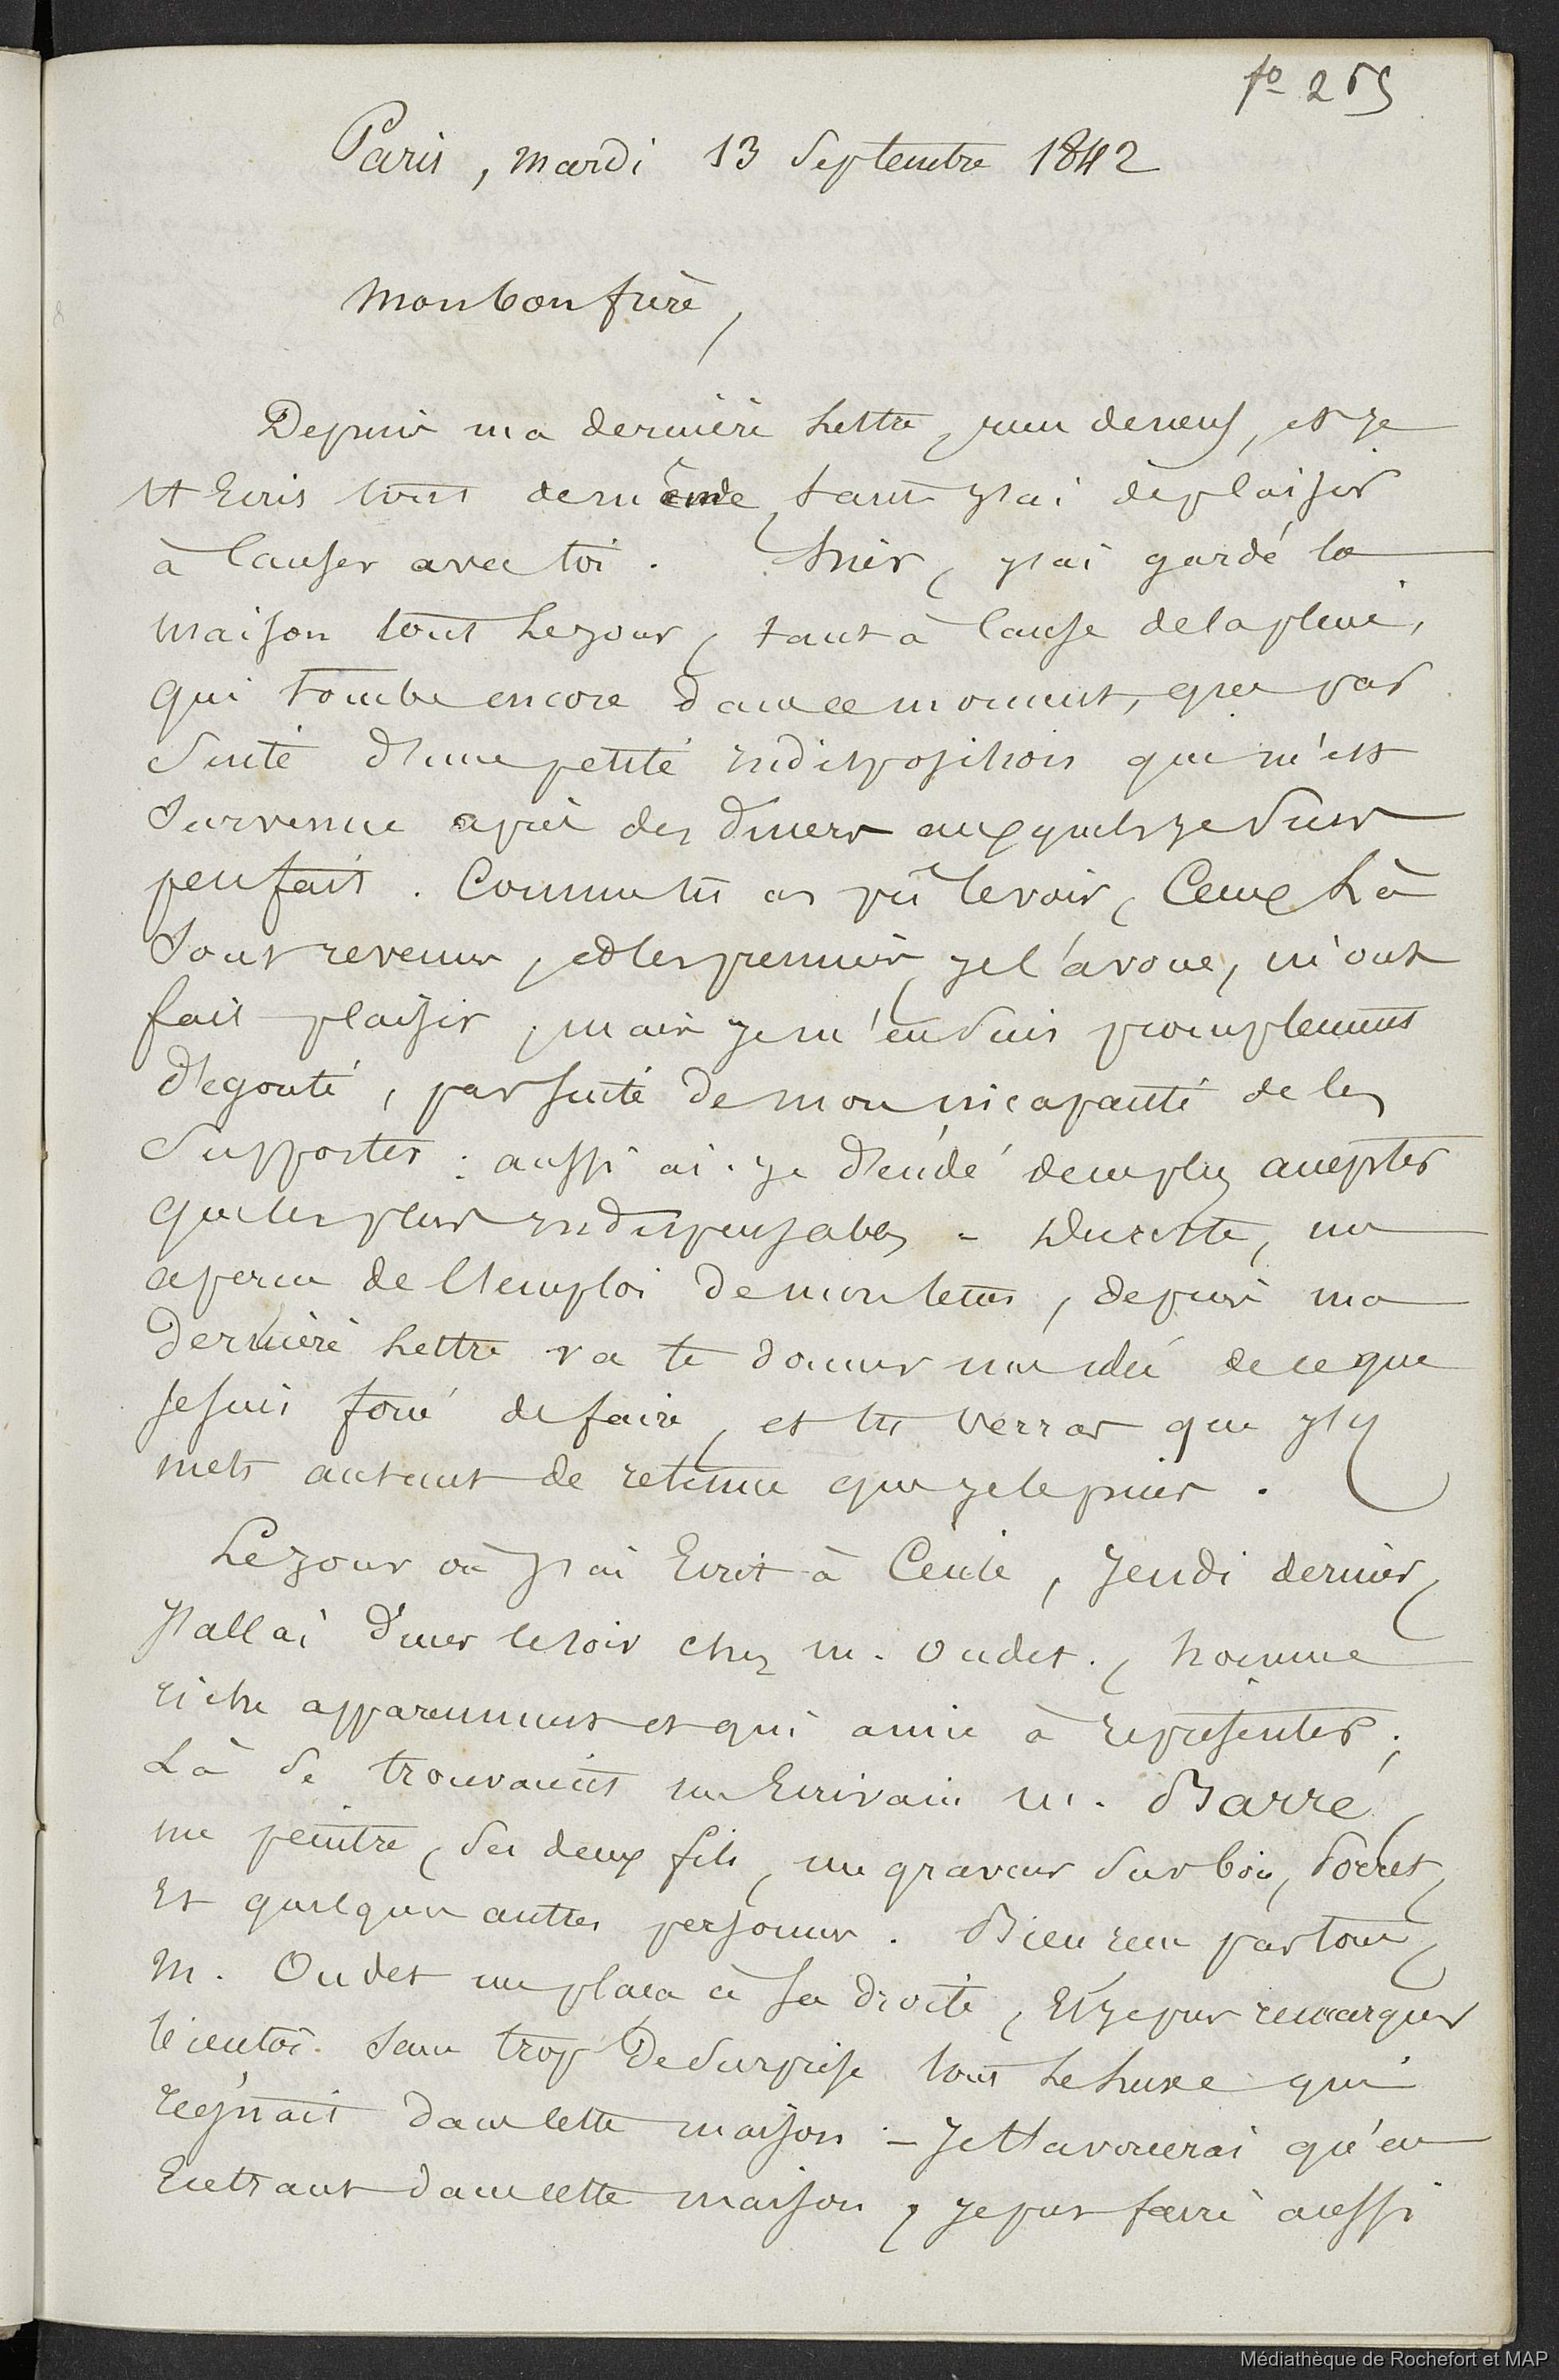 fo 265
Paris, mardi 13 Septembre 1842
Mon bon frère,
Depuis ma dernière Lettre, rien de neuf, et je
t'Ecris tout de même, tant j'ai de plaisir
à Causer avec toi. Hier, j'ai gardé la
maison tout Le jour, tant à Cause de la pluie,
qui tombe encore dans ce moment, que par
Suite d'une petite indisposition qui m'est
Survenue après des diners auxquels je Suis
peu fait. Comme tu as pû le voir, Ceux Là
Sont revenus, et les premiers, je l'avoue, m'ont
fait plaisir, mais je m'en Suis promptement
d'egouté, par Suite de mon incapacité de les
Supporter : aussi ai-je d'écidé de ne plus accepter
que les plus indispensables - Du reste, un
aperçu de l'emploi de mon tems, depuis ma
dernière Lettre va te donner une idée de ce que
je suis forcé de faire, et tu verras que j'y
mets autant de retenue que je le puis.
Le jour où j'ai Ecrit à Cécile, jeudi dernier,
j'allai diner le soir chez M. Oudet., homme
riche apparemment et qui aime à représenter;
Là Se trouvaient un Ecrivain M. Barré,
un peintre, Ses deux fils, un graveur Sur bois, Porret,
Et quelques autres personnes. Bien reçu partout,
M. Oudet me plaça à Sa droite, Et je pus remarquer
bientôt Sans trop De Surprise tout Le Luxe qui
régnait dans Cette maison - Je t'avouerai qu'en
Entrant dans cette maison, je pus faire aussi
Médiathèque de Rochefort et MAP